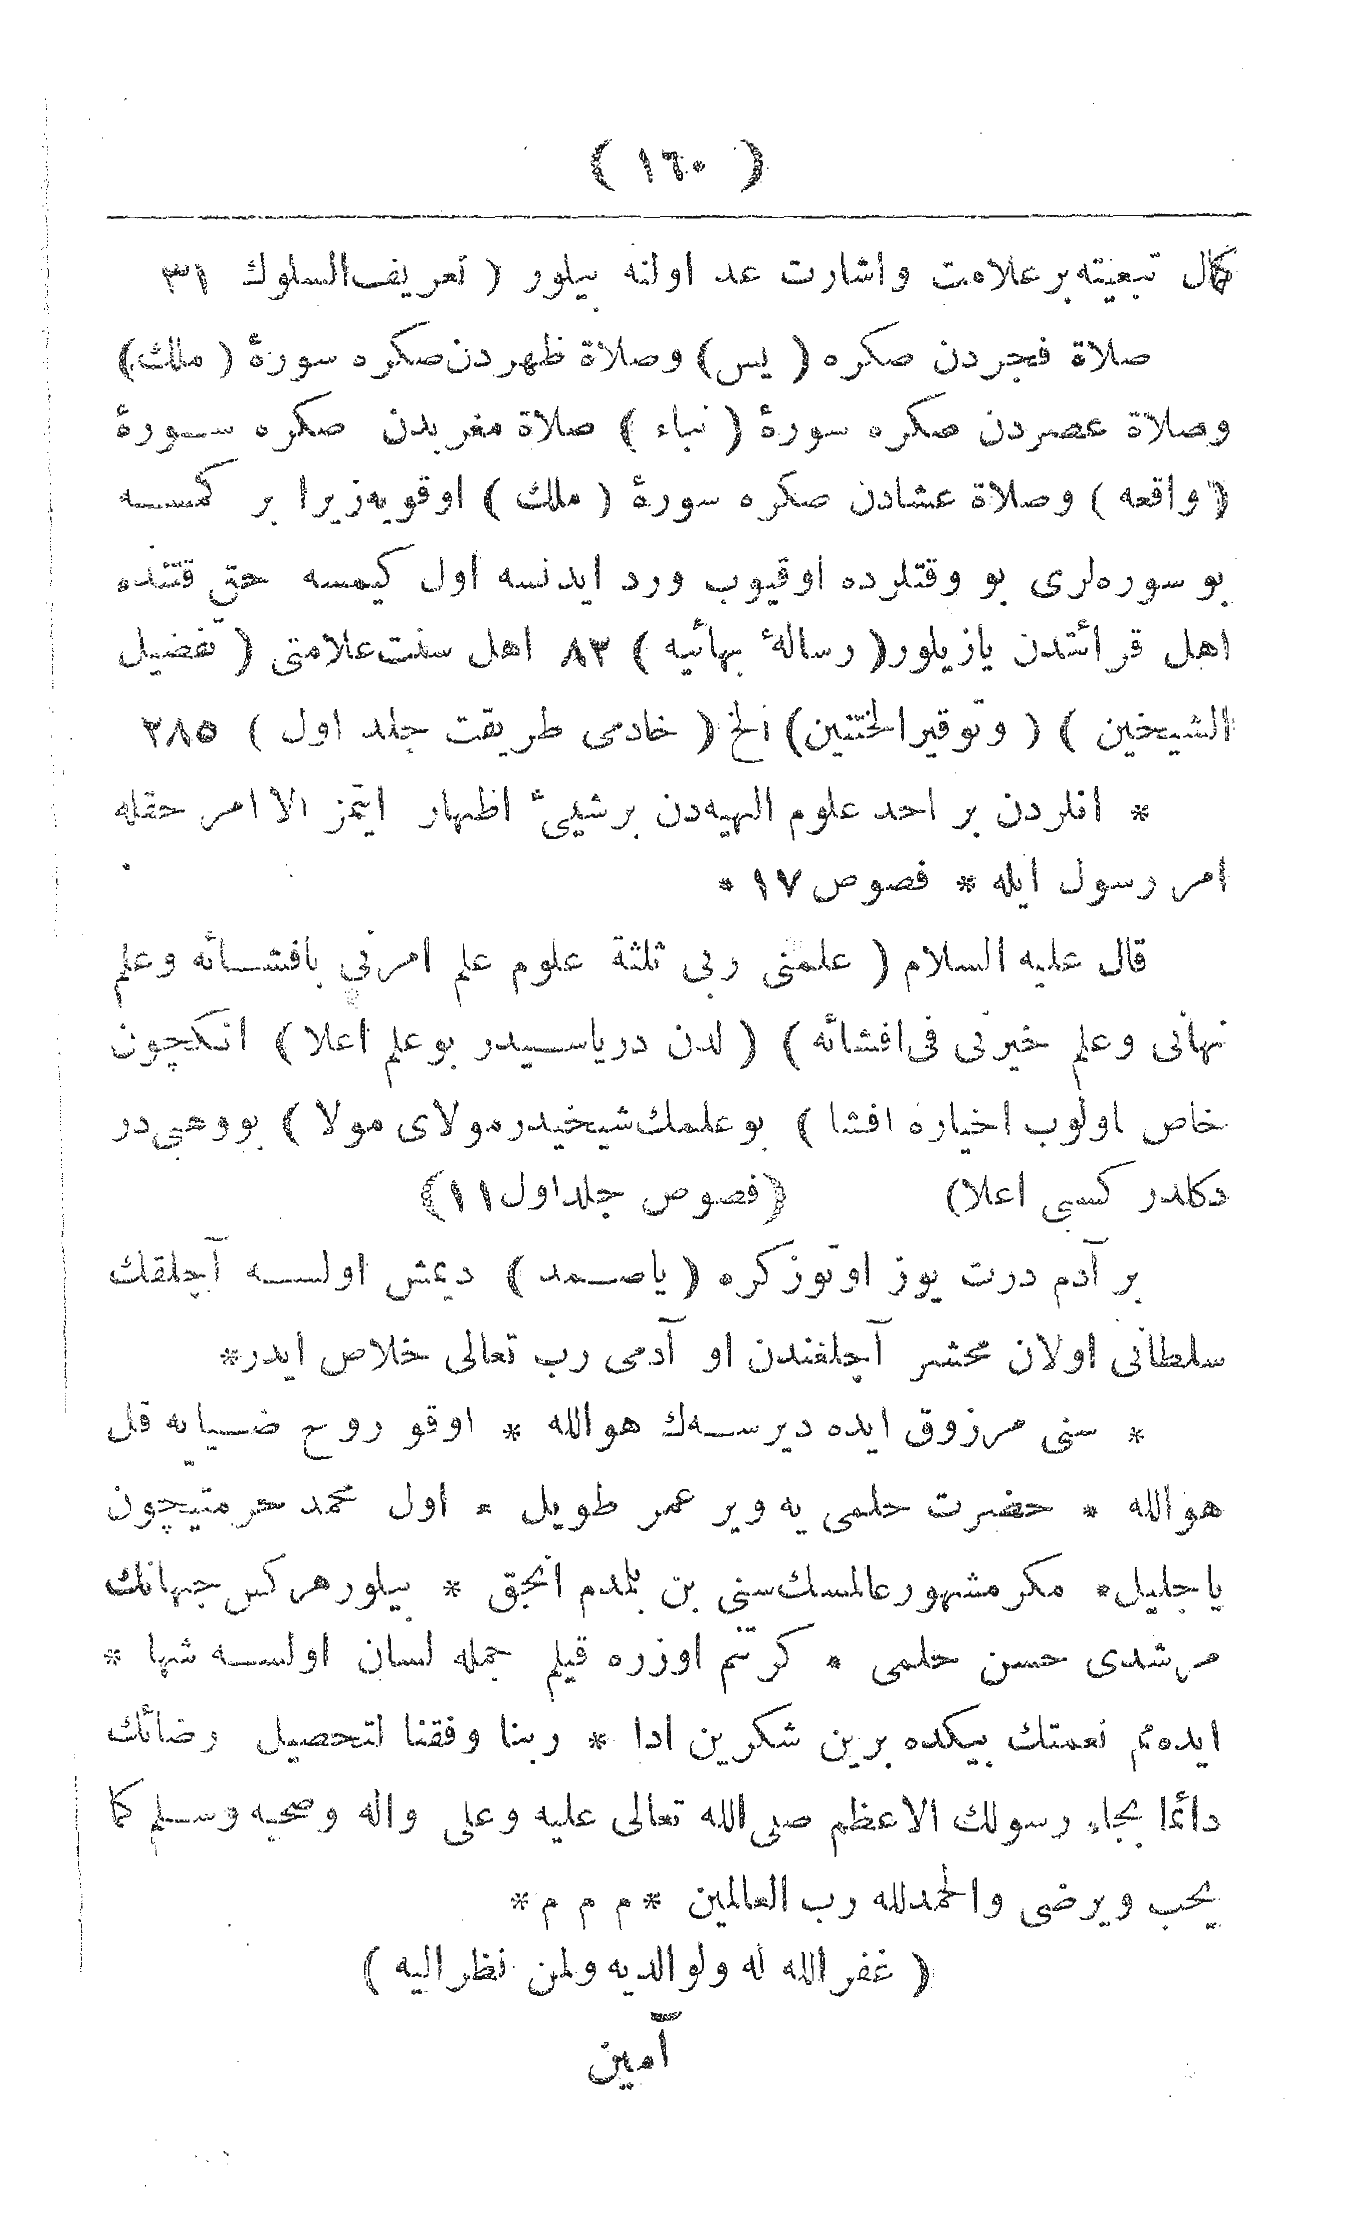 ( ١٦٠ )
كمال تبعيته بر علامت واشارت عد اولنه بيلور ( تعريف السلوك ٣١
صلاة فجردن صكره ( يس ) وصلاة ظهردن صكره سورۀ ( ملك )
وصلاة عصردن صكره سورۀ ( نباء ) صلاة مغربدن صكره سورۀ
( واقعه ) وصلاة عشادن صكره سورۀ ( ملك ) اوقويه زيرا بر كمسه
بو سوره‌لرى بو وقتلرده اوقيوب ورد ايدنسه اول كيمسه حق قتنده
اهل قرائتدن يازيلور ( رسالۀ بهائيه ) ٨٣ اهل سنت علامتى ( تفضيل
الشيخين ) ( وتوقير الختنين ) الخ ( خادمى طريقت جلد اول ) ٢٨٥
* انلردن بر احد علوم الهيه‌دن بر شيئ اظهار ايتمز الا امر حقله
امر رسول ايله * فصوص ١٧ •
قال عليه السلام ( علمنى ربى ثلثة علوم علم امرنى بافشائه وعلم
نهانى وعلم خيرنى فى افشائه ) ( لدن درياسيدر بو علم اعلا ) انكچون
خاص اولوب اخياره افشا ) بو علمك شيخيدر مولاى مولا ) بو وهبى در
دكلدر كسبى اعلا ) ( فصوص جلد اول ١١ )
بر آدم درت يوز اوتوز كره ( ياصمد ) ديمش اولسه آچلقك
سلطانى اولان محشر آچلغندن او آدمى رب تعالى خلاص ايدر *
* سنى مرزوق ايده ديرسه‌ك هوالله * اوقو روح ضيايه قل
هوالله • حضرت حلمى يه وير عمر طويل • اول محمد حرمتيچون
ياجليل • مكر مشهور عالمسك سنى بن بلمدم انجق * بيلور هركس جهانك
مرشدى حسن حلمى • كر تنم اوزره قيلم جمله لسان اولسه شها *
ايده‌مم نعمتك بيكده برين شكرين ادا * ربنا وفقنا لتحصيل رضائك
دائما بجاه رسولك الاعظم صلى الله تعالى عليه وعلى واله وصحبه وسلم كما
يحب ويرضى والحمدلله رب العالمين * م م م *
( غفر الله له ولوالديه ولمن نظر اليه )
آمين